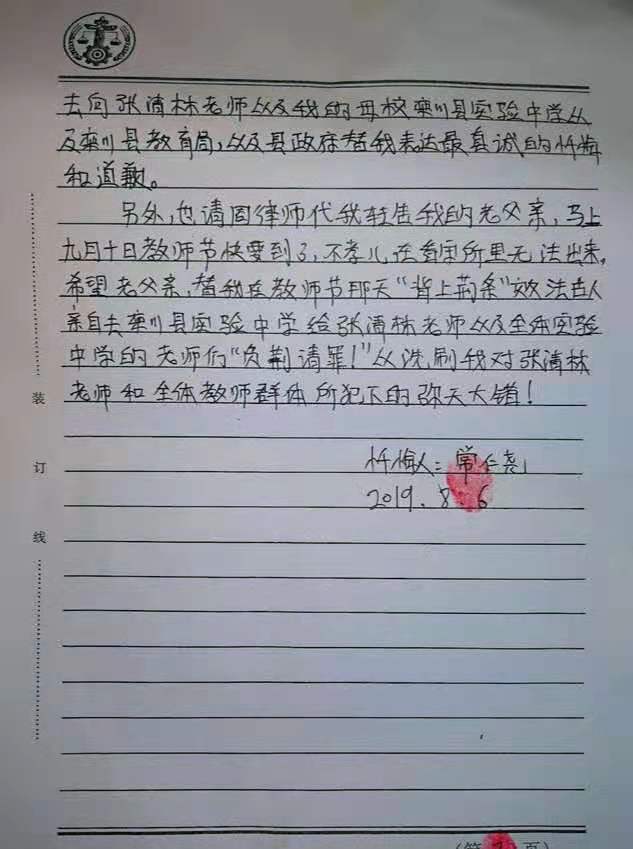 去向张清林老师以及我的母校栾川县实验中学以
及栾川县教育局,以及县政府替我表达最真诚的忏悔
和道歉。
另外,也请周律师代我转告我的老父亲,马上
九月十日教师节快要到了,不孝儿在看守所里无法出来。
希望老父亲,替我在教师节那天“背上荆条”效法古人
亲自去栾川县实验中学给张清林老师以及全体实验
中学的老师们“负荆请罪!”以洗刷我对张清林
老师和全体教师群体所犯下的弥天大错!
忏悔人:常仁尧
2019.8.6
装
订
线
(第 页)